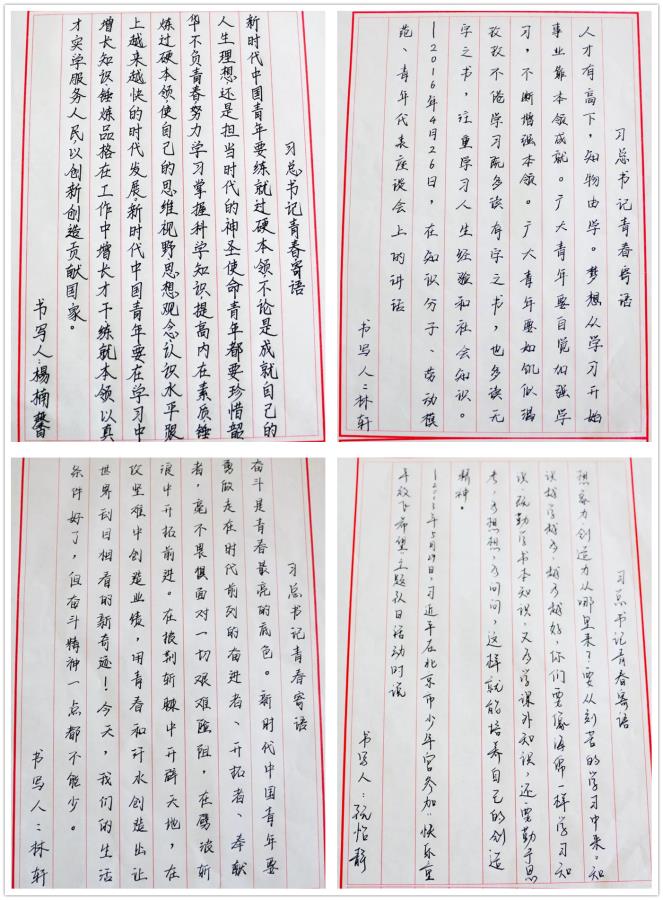 习总书记青春寄语
新时代中国青年要练就过硬本领，不论是成就自己的
人生理想还是担当时代的神圣使命青年都要珍惜韶
华不负青春努力学习掌握科学知识，提高内在素质锤
炼过硬本领，使自己的思维视野思想观念认识水平跟
上越来越快的时代发展。新时代中国青年要在学习中
增长知识锤炼品格在工作中增长才干练就本领以真
才实学服务人民，以创新创造贡献国家。
书写人：杨楠馨
习总书记青春寄语
人才有高下，知物由学。梦想从学习开始
事业靠本领成就。广大青年要自觉加强学
习，不断增强本领。广大青年要如饥似渴
孜孜不倦学习既多读有字之书，也多读无
字之书，注重学习人生经验和社会知识。
—2016年4月26日，在知识分子、劳动模
范、青年代表座谈会上的讲话
书写人：林轩
习总书记青春寄语
奋斗是青春最亮的底色。新时代中国青年要
勇做走在时代前列的奋进者、开拓者、奉献
者，毫不畏惧面对一切艰难险阻，在劈波斩
浪中开拓前进。在披荆斩棘中开辟天地，在
攻坚难中创造业绩，用青春和汗水创造出让
世界刮目相看的新奇迹！今天，我们的生活
条件好了，但奋斗精神一点都不能少。
书写人：林轩
习总书记青春寄语
想象力，创造力从哪里来？要从刻苦的学习中来。知
识越学越多，越多越好，你们要像海绵一样学习知
识，既勤学书本知识，又多学课外知识，还要勤于思
考，多想想，多问问，这样就能培养自己的创造
精神。
—2013年5月29日，习近平在北京市少年宫参加“快乐童
年放飞希望”主题队日活动时说
书写人：阮怡静